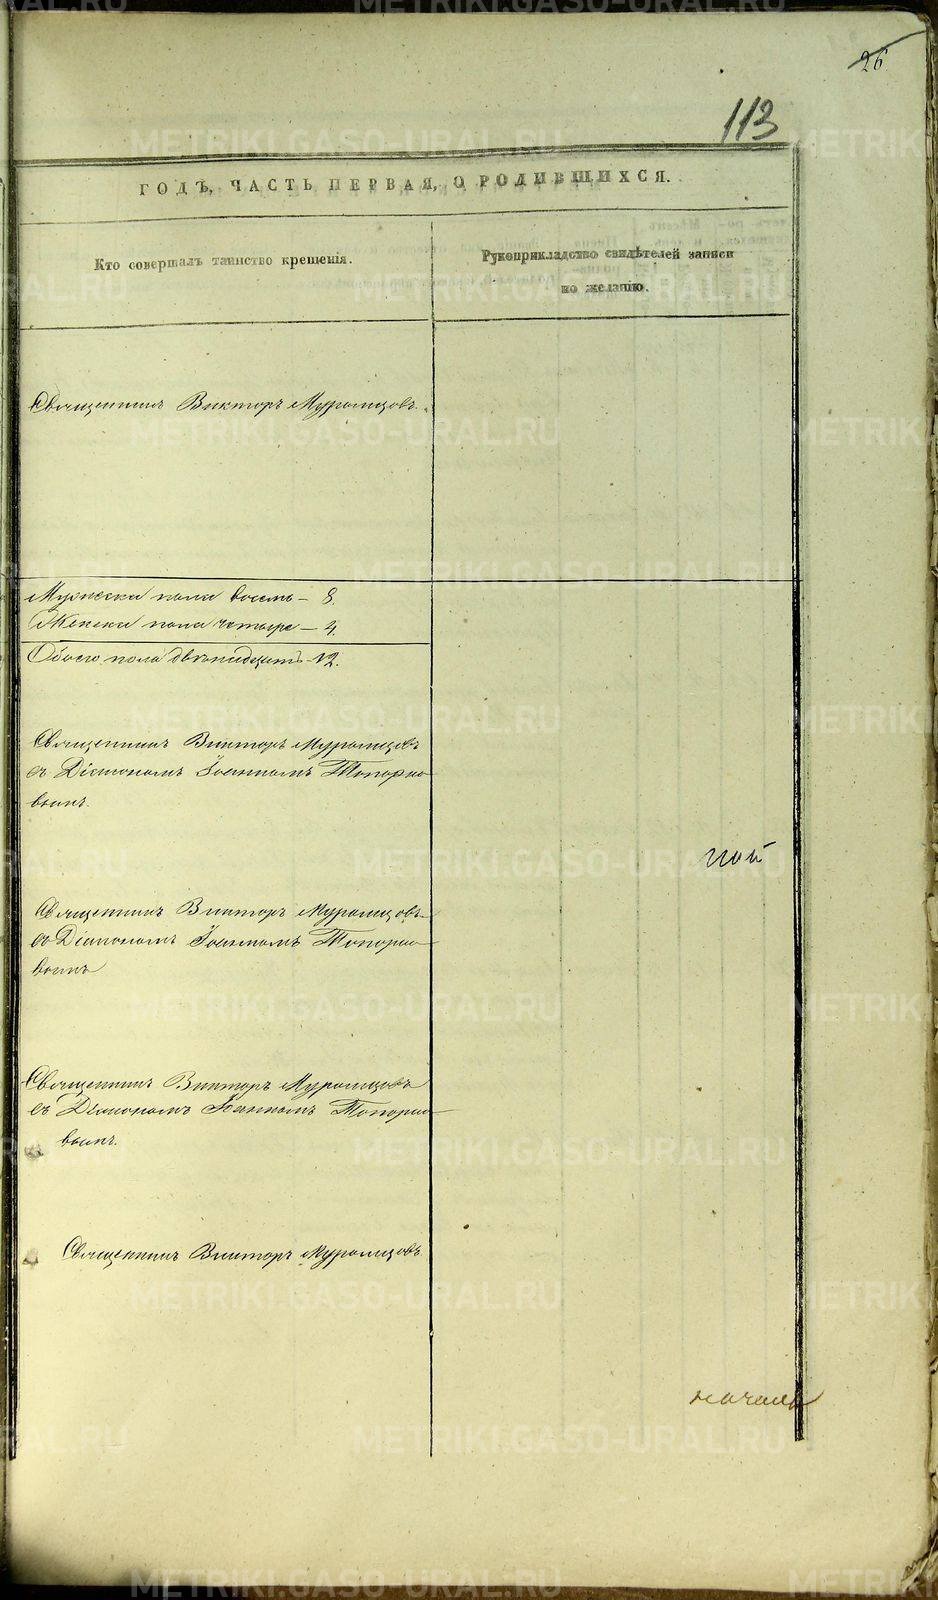 26
113
ГОДЪ, ЧАСТЬ ПЕРВАЯ, О РОДИВШИХСЯ.
Кто совершалъ таинство крещенія.
Рукоприкладство свидѣтелей записи
по желанію.
Священникъ Викторъ Муромцовъ.
Мужеска пола восемь – 8.
Женска пола четыре – 4.
Обоего пола двѣнадцать – 12.
Священникъ Викторъ Муромцовъ
съ Діакономъ Іоанномъ Топорко
вымъ.
ной
Священникъ Викторъ Муромцовъ
съ Діакономъ Іоанномъ Топорко
вымъ
Священникъ Викторъ Муромцовъ
съ Діакономъ Іоанномъ Топорко
вымъ.
Священникъ Викторъ Муромцовъ
METRIKI.GASO-URAL.RU